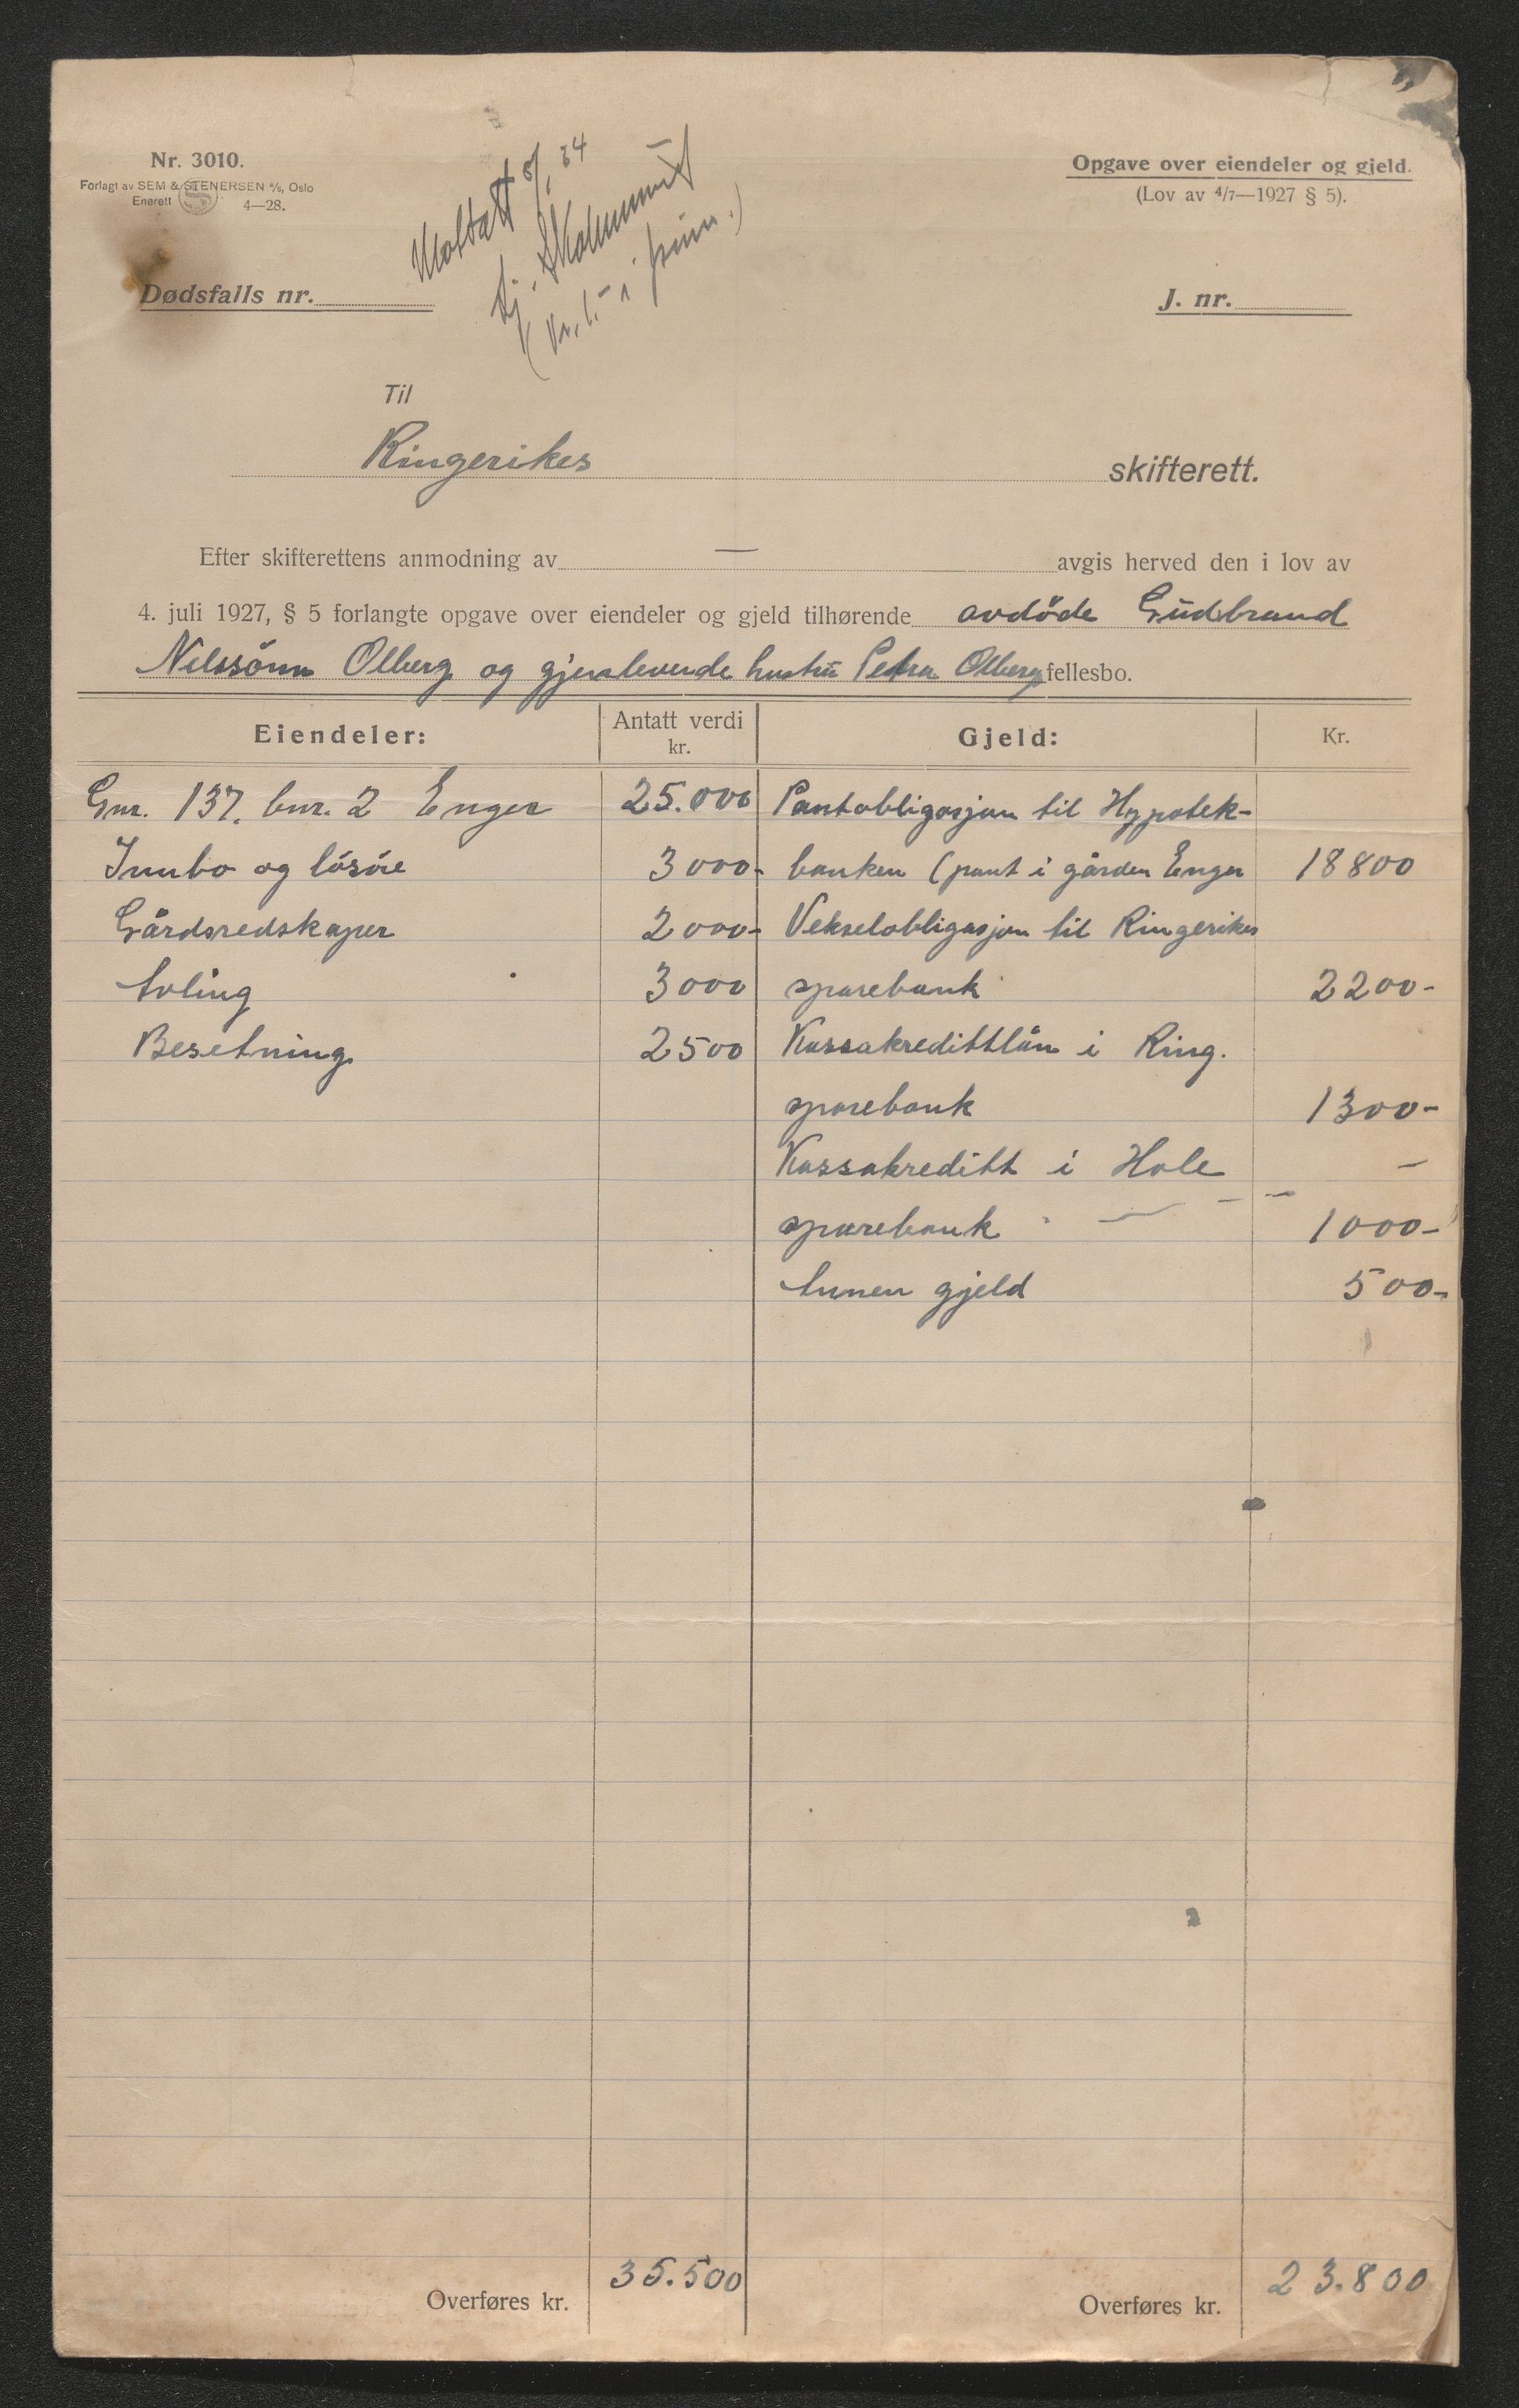 Nr. 3010.
Forlagt av SEM & STENERSEN A/S, Oslo
Enerett S 4—28.
Opgave over eiendeler og gjeld.
(Lov av 4/7—1927 § 5).
Mottatt 8/1 34
(kr. 1.- i
Dødsfalls nr.
J. nr.
Til
Ringerikes skifterett.
Efter skifterettens anmodning av — avgis herved den i lov av
4. juli 1927, § 5 forlangte opgave over eiendeler og gjeld tilhørende avdöde Gudbrand
Nilssönn Olberg og gjenlevende hustru Petra Olberg fellesbo.
Eiendeler: Antatt verdi kr. Gjeld: Kr.
Gnr. 137. bnr. 2 Enger 25.000 Pantobligasjon til Hypotek-
Innbo og lösöre 3000- banken (pant i gården Enger 18800
Gårdsredskaper 2000- Vekselobligasjon til Ringerikes
Avling 3000 sparebank 2200-
Besetning 2500 Kassakredittlån i Ring.
sparebank 1300-
Kassakreditt i Hole –
sparebank 1000-
Annen gjeld 500-
Overføres kr. 35.500 Overføres kr. 23.800